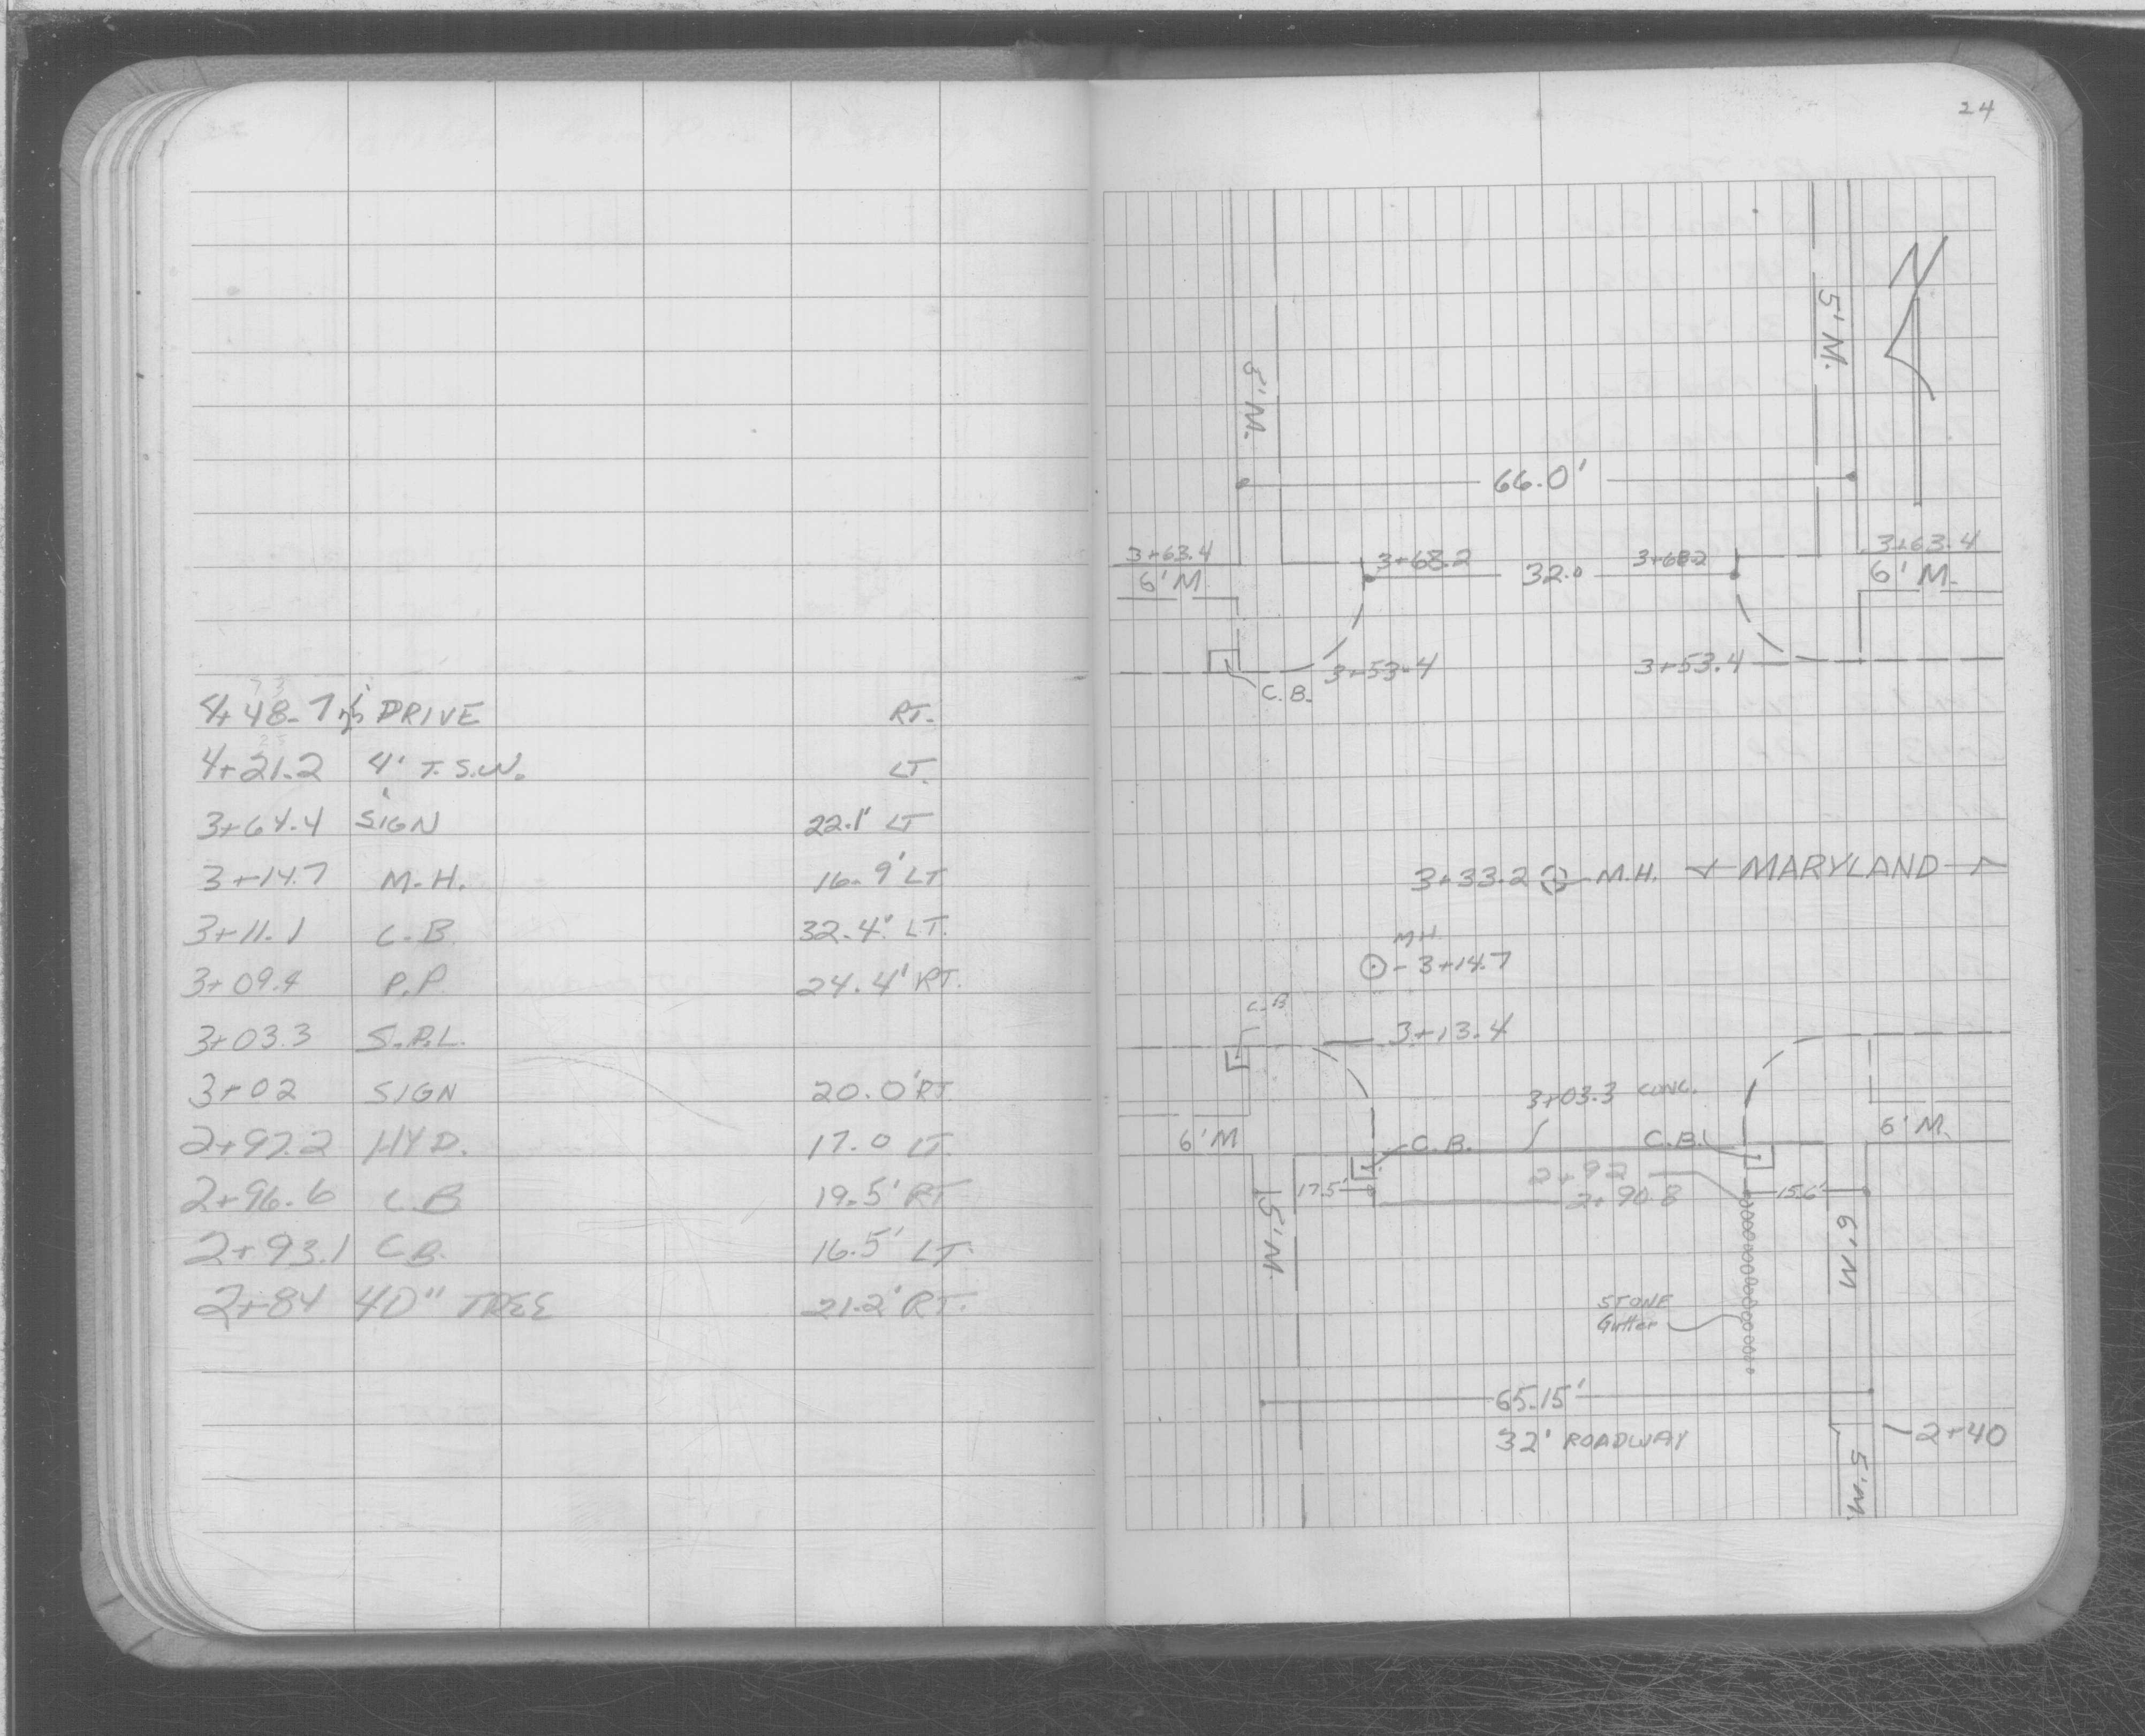 24
4+48.7 DRIVE RT.
4+21.2 4' T.S.W. LT.
3+64.4 SIGN 22.1' LT
3+14.7 M.H. 16.9' LT
3+11.1 C.B. 32.4' LT.
3+09.4 P.P. 24.4' RT.
3+03.3 S.P.L.
3+02 SIGN 20.0' RT
2+97.2 HYD. 17.0 LT.
2+96.6 C.B 19.5' RT
2+93.1 C.B. 16.5' LT.
2+84 40" TREE 21.2' RT.
N
5' M.
5' M.
66.0'
3+63.4 3+68.2 32.0 3+68.2 3+63.4
6' M. 6' M.
3+53.4 3+53.4
C.B.
3+33.2 M.H. MARYLAND
MH
3+14.7
C.B
3+13.4
3+03.3 CONC.
6' M C.B. C.B. 6' M.
2+92
17.5' 2+90.8 15.6'
5' M. 6' M
STONE
Gutter
65.15'
32' ROADWAY 2+40
5' M.